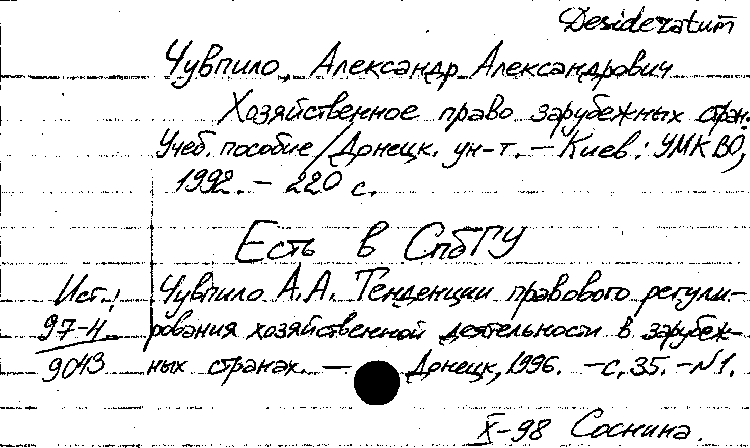 Desideratum
Чувпило, Александр Александрович
Хозяйственное право зарубежных стран.
Учеб. пособие / Донецк. ун-т. – Киев: УМК ВО,
1992. – 220 с.
Есть в СпбГУ
Ист.: Чувпило А.А. Тенденции правового регули-
97-4 рования хозяйственной деятельности в зарубеж-
9043 ных странах. – Донецк, 1996. – с. 35. – N1.
X-98 Соснина.